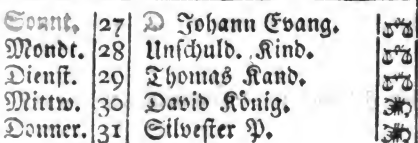 Sonnt. 27 D Johann Evang.
Mondt. 28 Unschuld. Kind.
Dienst. 29 Thomas Kand.
Mittw. 30 David König.
Donner. 31 Silvester P.